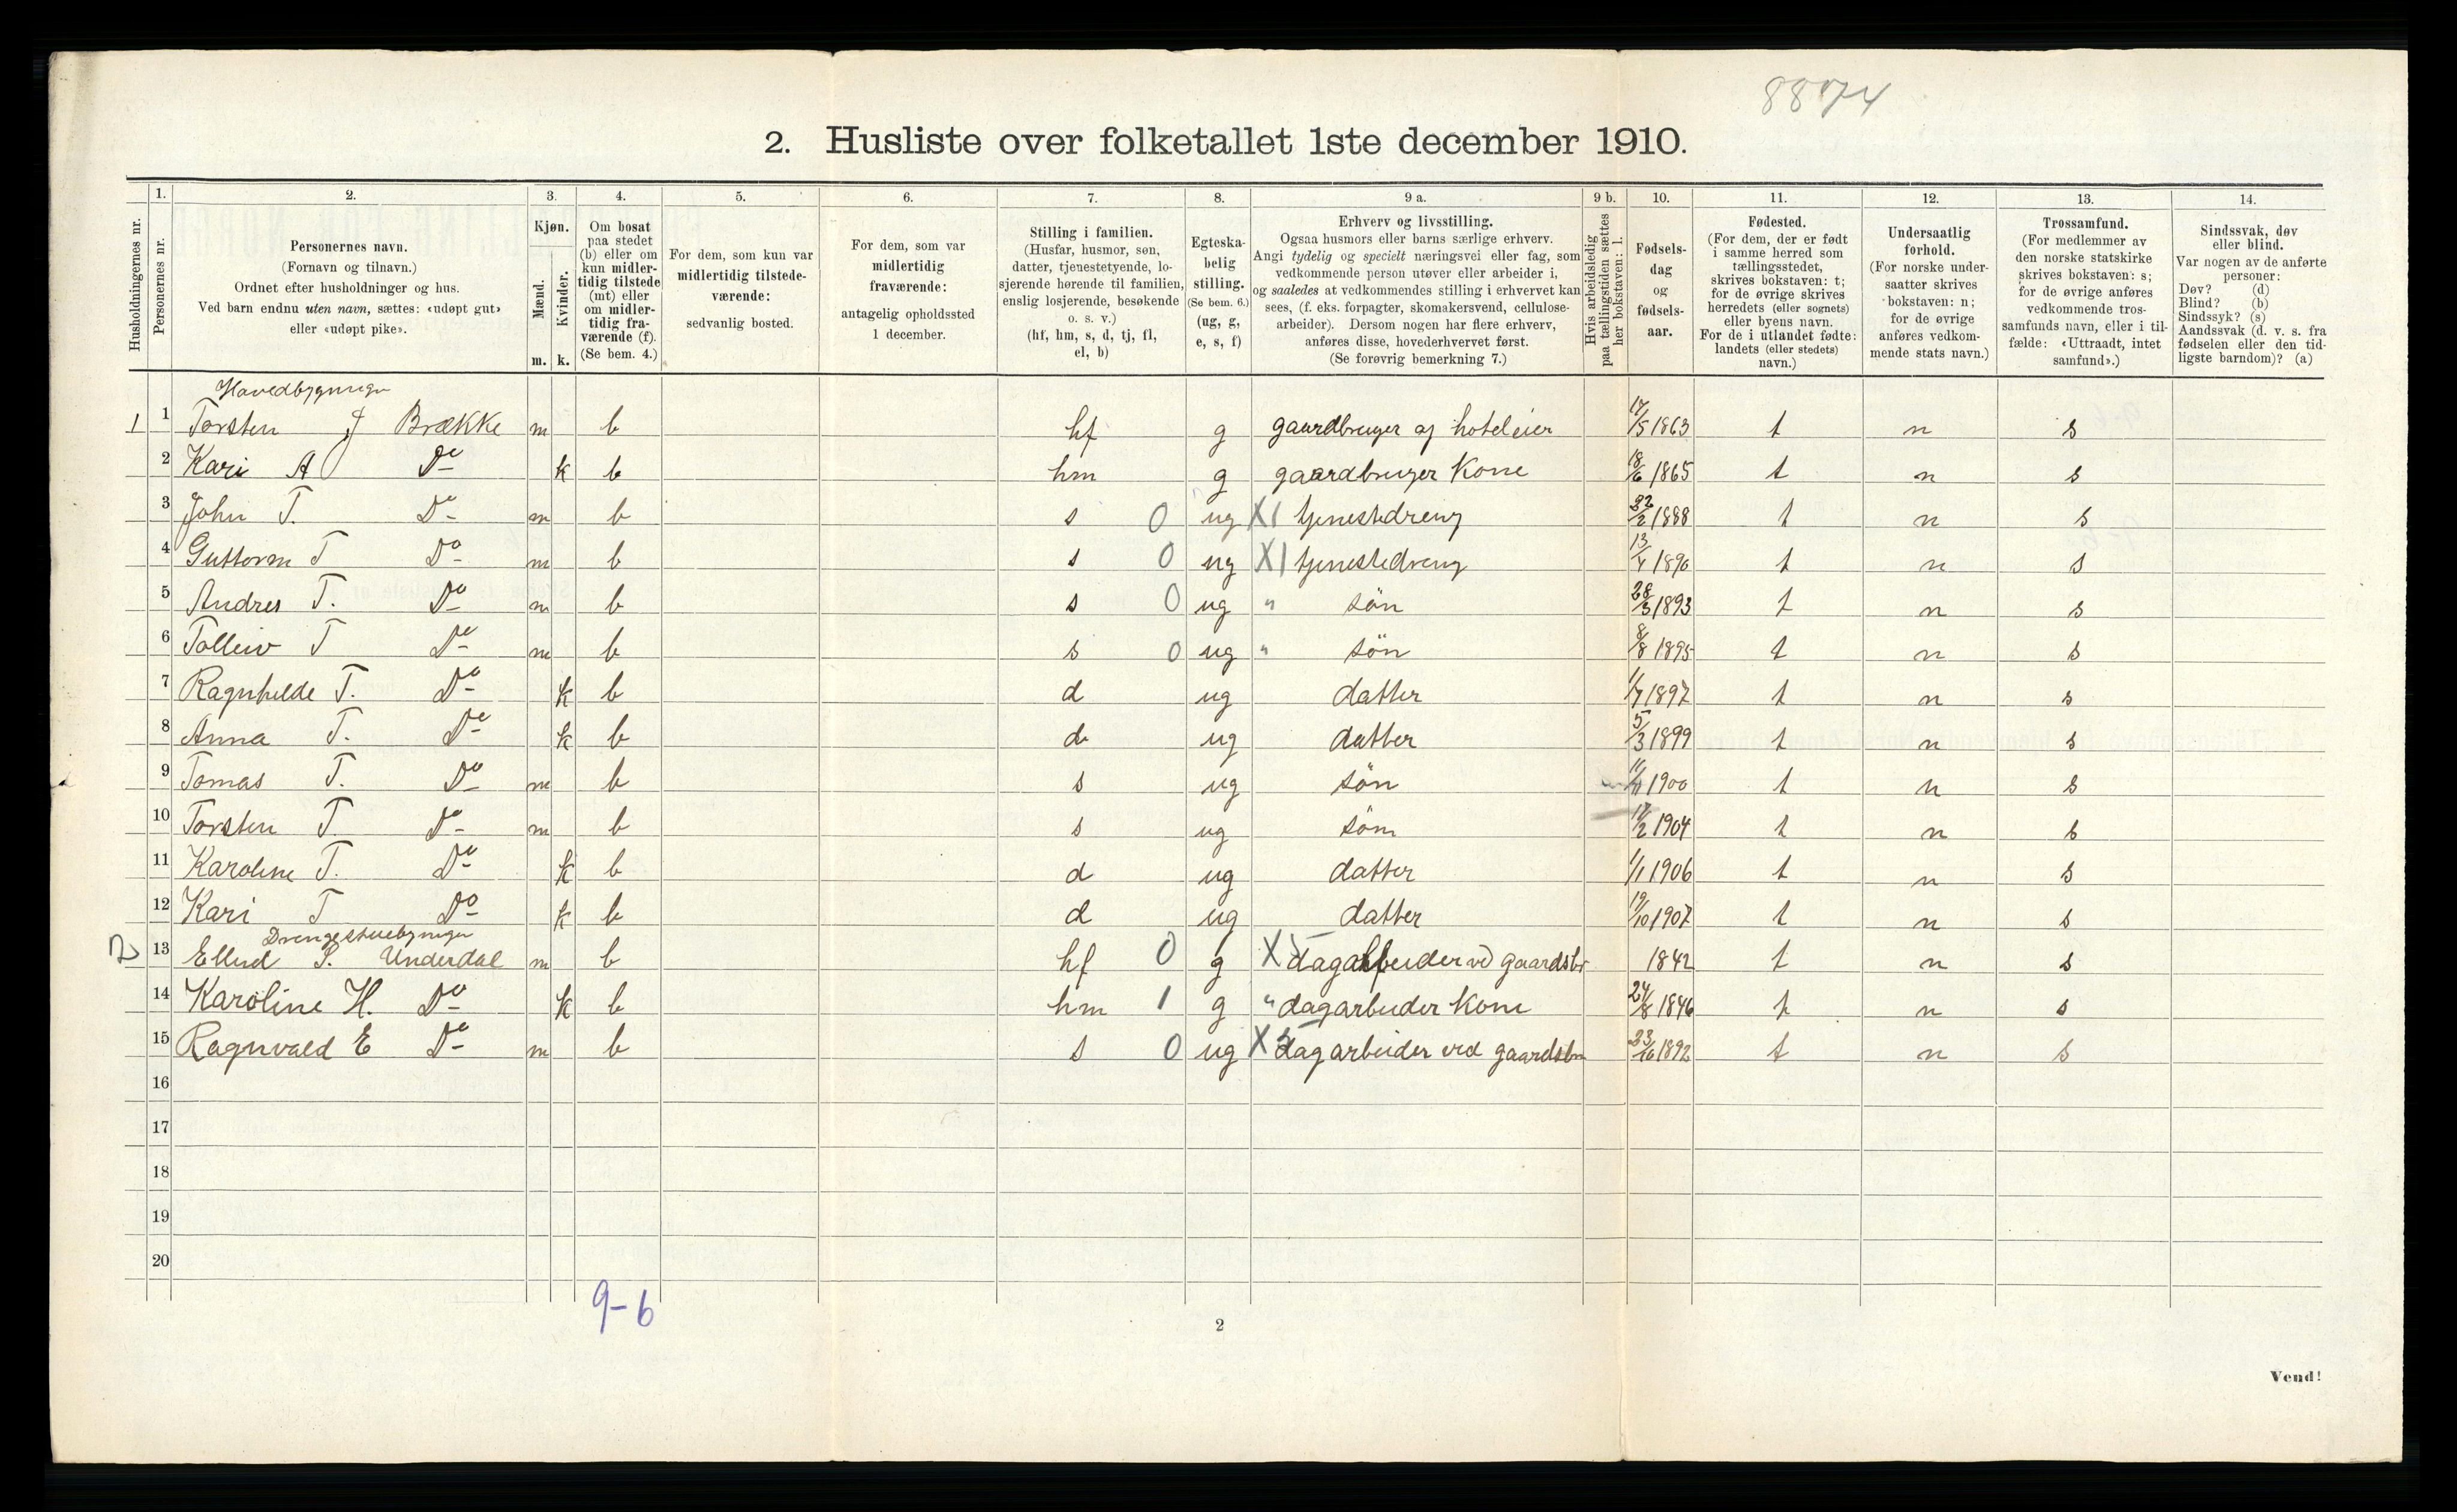 8874
2. Husliste over folketallet 1ste december 1910.
1. 2. 3. 4. 5. 6. 7. 8. 9 a. 9 b. 10. 11. 12. 13. 14.
Husholdningernes nr.
Personernes nr.
Personernes navn.
(Fornavn og tilnavn.)
Ordnet efter husholdninger og hus.
Ved barn endnu uten navn, sættes: «udøpt gut»
eller «udøpt pike».
Kjøn.
Mænd.
Kvinder.
m. k.
Om bosat
paa stedet
(b) eller om
kun midler-
tidig tilstede
(mt) eller
om midler-
tidig fra-
værende (f).
(Se bem. 4.)
For dem, som kun var
midlertidig tilstede-
værende:
sedvanlig bosted.
For dem, som var
midlertidig
fraværende:
antagelig opholdssted
1 december.
Stilling i familien.
(Husfar, husmor, søn,
datter, tjenestetyende, lo-
sjerende hørende til familien,
enslig losjerende, besøkende
o. s. v.)
(hf, hm, s, d, tj, fl,
el, b)
Egteska-
belig
stilling.
(Se bem. 6.)
(ug, g,
e, s, f)
Erhverv og livsstilling.
Ogsaa husmors eller barns særlige erhverv.
Angi tydelig og specielt næringsvei eller fag, som
vedkommende person utøver eller arbeider i,
og saaledes at vedkommendes stilling i erhvervet kan
sees, (f. eks. forpagter, skomakersvend, cellulose-
arbeider). Dersom nogen har flere erhverv,
anføres disse, hovederhvervet først.
(Se forøvrig bemerkning 7.)
Hvis arbeidsledig
paa tællingstiden sættes
her bokstaven: l.
Fødsels-
dag
og
fødsels-
aar.
Fødested.
(For dem, der er født
i samme herred som
tællingsstedet,
skrives bokstaven: t;
for de øvrige skrives
herredets (eller sognets)
eller byens navn.
For de i utlandet fødte:
landets (eller stedets)
navn.)
Undersaatlig
forhold.
(For norske under-
saatter skrives
bokstaven: n;
for de øvrige
anføres vedkom-
mende stats navn.)
Trossamfund.
(For medlemmer av
den norske statskirke
skrives bokstaven: s;
for de øvrige anføres
vedkommende tros-
samfunds navn, eller i til-
fælde: «Uttraadt, intet
samfund».)
Sindssvak, døv
eller blind.
Var nogen av de anførte
personer:
Døv? (d)
Blind? (b)
Sindssyk? (s)
Aandssvak (d. v. s. fra
fødselen eller den tid-
ligste barndom)? (a)
Havedbygnign
1 1 Torsten J Brække m b hf g gaardbruger og hoteleier 17/5 1863 t n s
2 Kari A Do k b hm g gaardbruger Kone 18/6 1865 t n s
3 John T. Do m b s 0 ug X1 tjenestedreng 22/2 1888 t n s
4 Guttorm T Do m b s 0 ug X1 tjenestedreng 13/4 1890 t n s
5 Andres T. Do m b s 0 ug " søn 28/3 1893 t n s
6 Tolleiv T Do m b s 0 ug " søn 8/8 1895 t n s
7 Ragnhilde T. Do k b d ug datter 1/7 1897 t n s
8 Anna T. Do k b d ug datter 5/3 1899 t n s
9 Tomas T. Do m b s ug søn 1900 t n s
10 Torsten T Do m b s ug søn 17/2 1904 t n s
11 Karoline T. Do k b d ug datter 1/1 1906 t n s
12 Kari T Do k b d ug datter 19/10 1907 t n s
Drengestuebygnign
2 13 Ellend S. Underdal m b hf 0 g X dagarbeider ved gaardsbr 1842 t n s
14 Karoline H. Do k b hm 1 g " dagarbeider Kone 24/8 1846 t n s
15 Ragnvald E Do m b s 0 ug X dagarbeider ved gaardsbr 23/10 1892 t n s
16
17
18
19
20
9-6
2
Vend!